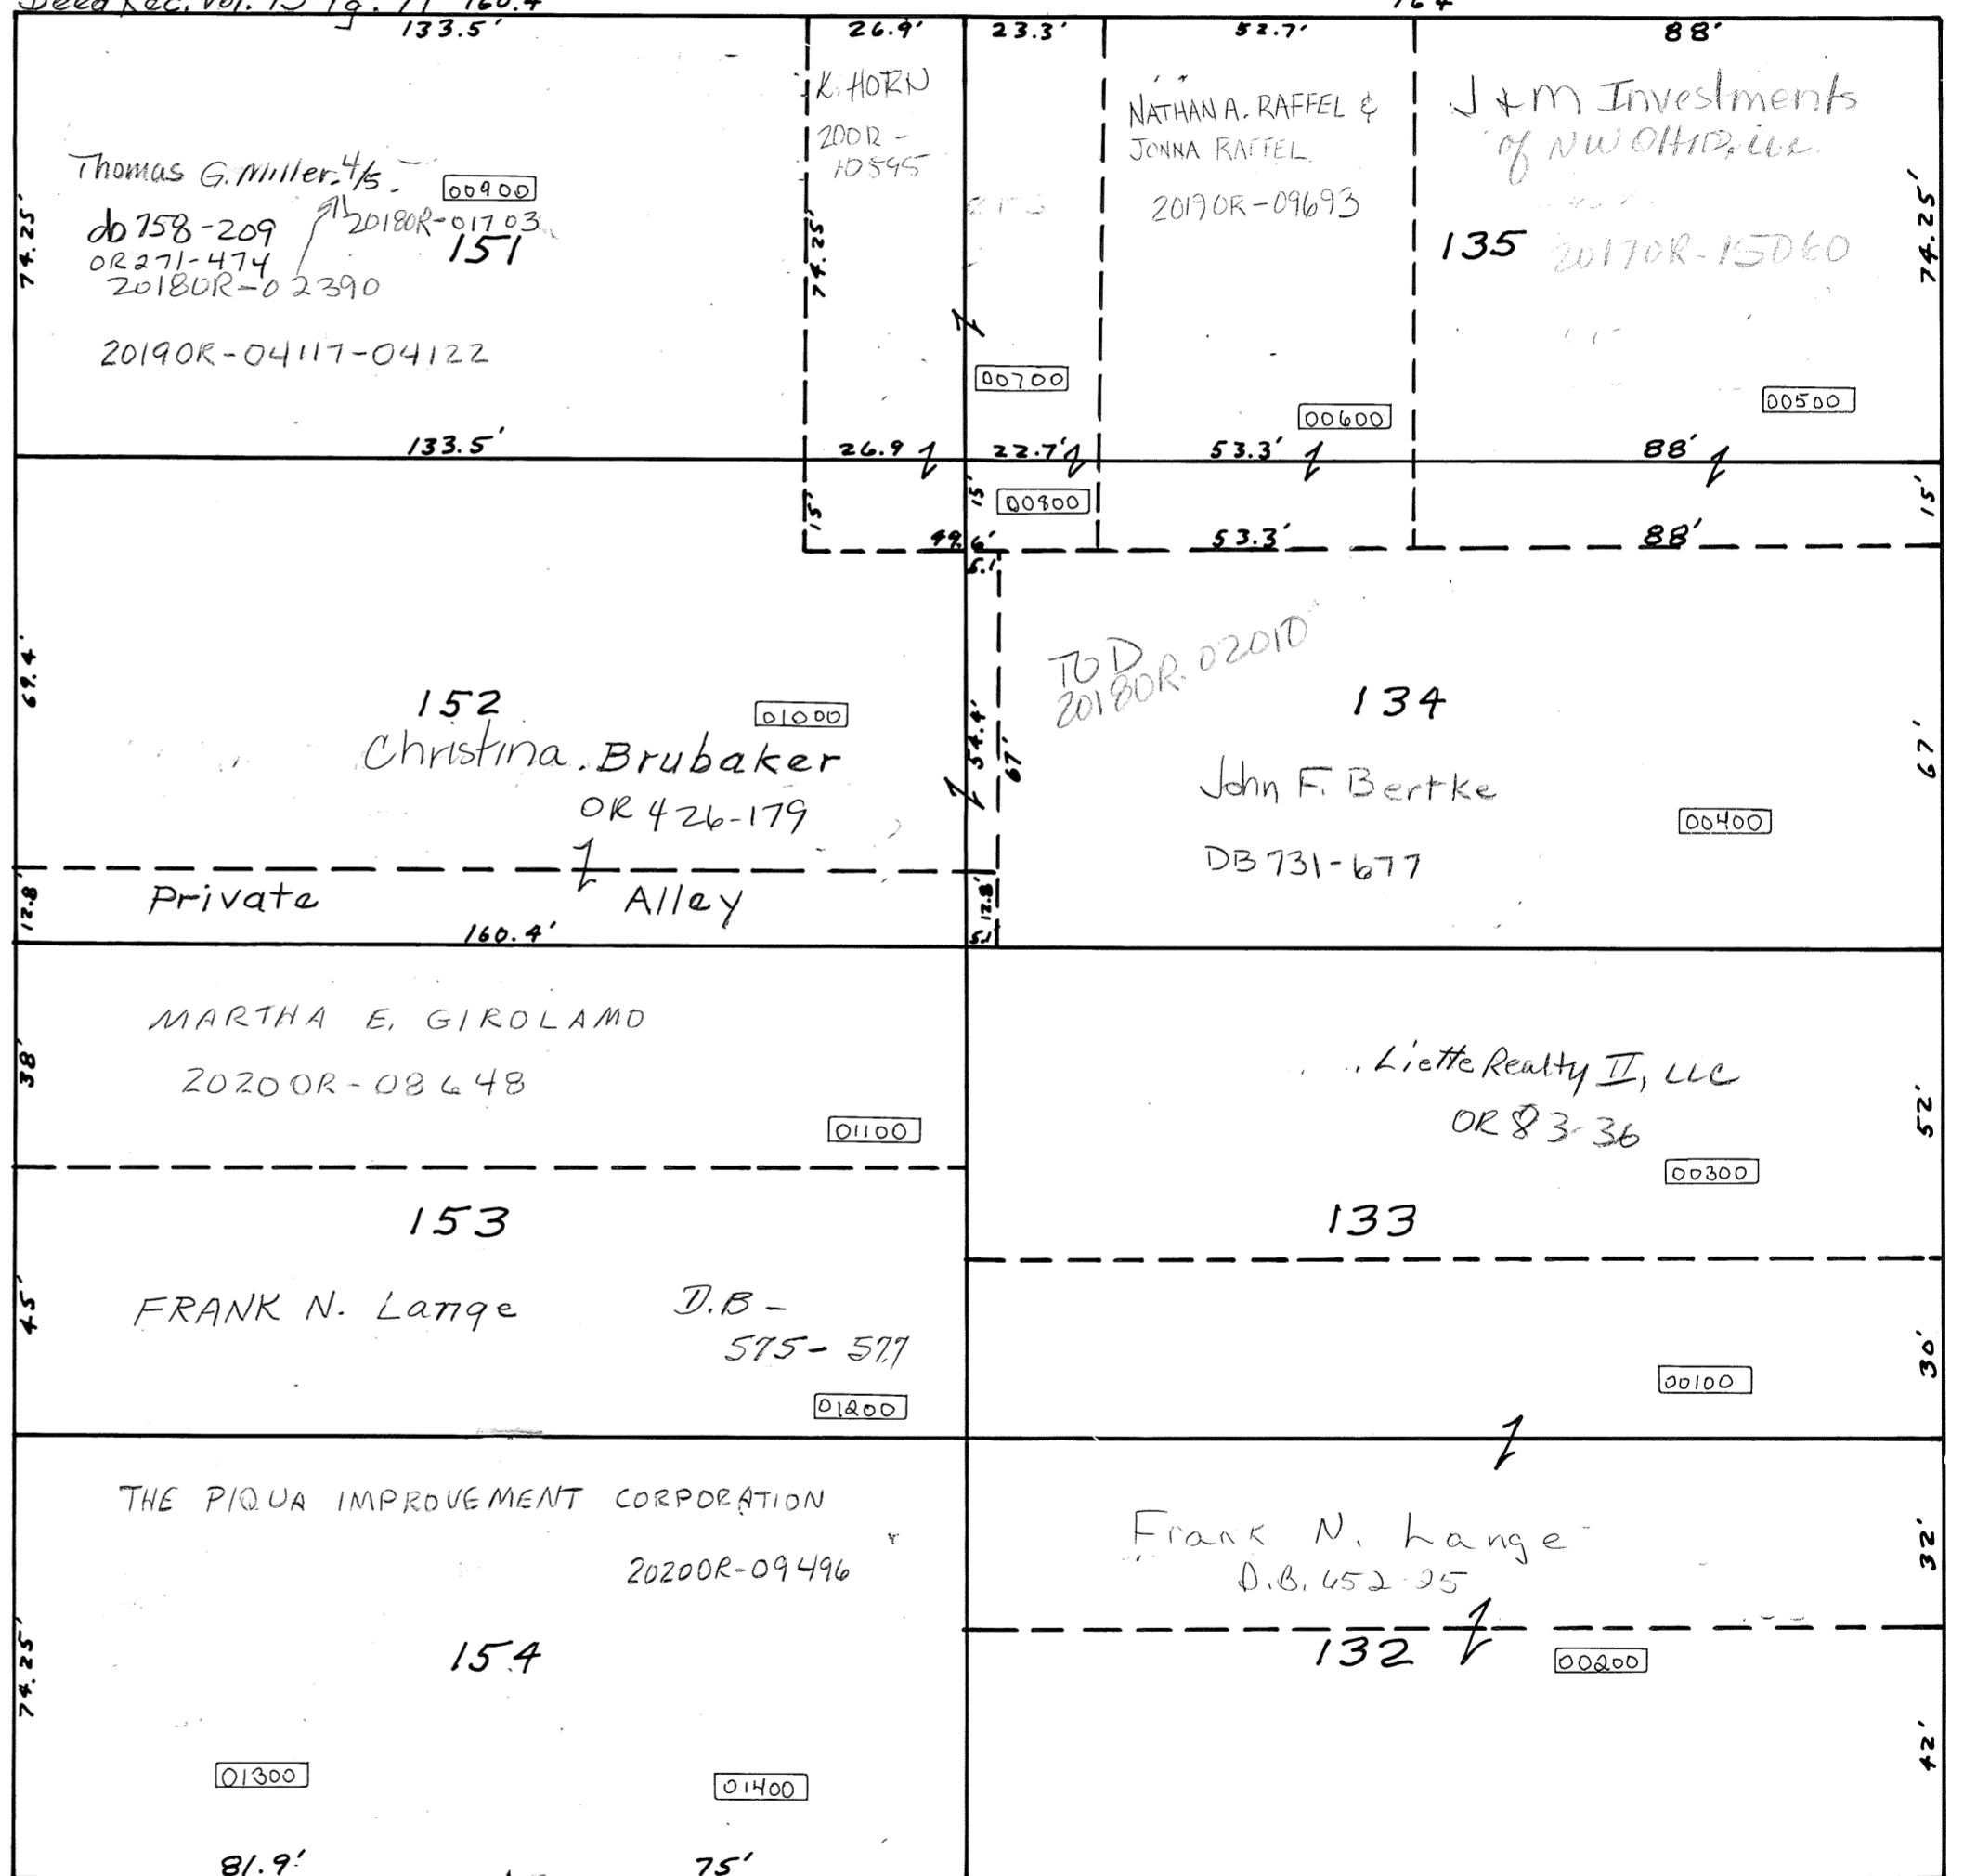 Deed Rec. Vol. 15 Pg. 77 160.4
164
133.5' 26.9' 23.3' 52.7' 88'
K. HORN
200R-
10595
NATHAN A. RAFFEL &
JONNA RAFFEL
20190R-09693
J + M Investments
of NW OHIO, LLC.
135 20170R-15060
Thomas G. Miller 4/5
00900
db 758-209 20180R-01703
OR 271-474 151
20180R-02390
20190R-04117-04122
74.25' 74.25' 74.25'
00700 00600 00500
133.5' 26.9 22.7' 53.3' 88'
15' 15' 00800 15'
49.6' 53.3' 88'
5.1
69.4'
152 01000
Christina Brubaker
OR 426-179
54.4' 67'
TOD
20180R-02010
134
John F. Bertke
00400
DB 731-677
67'
12.8' Private Alley 12.8'
160.4' 5.1
MARTHA E. GIROLAMO
20200R-08648
38'
01100
Liette Realty II, LLC
OR 83-36
52'
00300
153
133
FRANK N. Lange D.B-
575-577
45'
01200
30'
00100
THE PIQUA IMPROVEMENT CORPORATION
20200R-09496
154
74.25'
01300 01400
81.9' 75'
Frank N. Lange
D.B. 652-25
32'
132 00200
42'